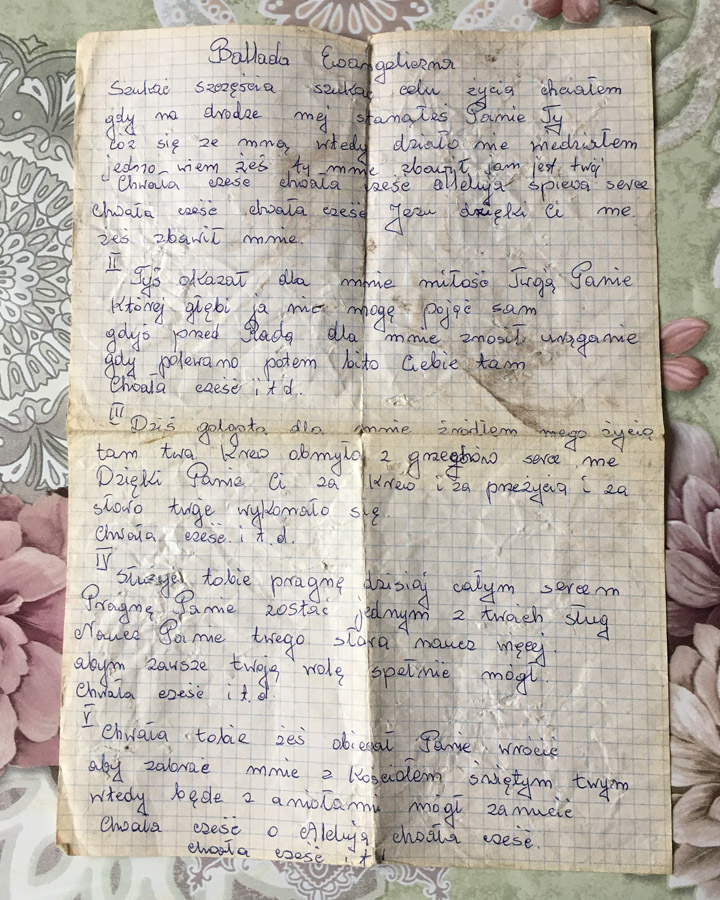 Ballada Ewangeliczna
Szukać szczęścia szukać celu życia chciałem
gdy na drodze mej stanąłeś Panie Ty
cóż się ze mną wtedy działo nie wiedziałem
jedno wiem żeś ty mnie zbawił jam jest twój
Chwała cześć chwała cześć alleluja śpiewa serce
Chwała cześć chwała cześć Jezu dzięki Ci me.
żeś zbawił mnie.
II
Tyś okazał dla mnie miłość Twą Panie
Której głębi ja nie mogę pojąć sam
gdyś przed Radą dla mnie znosił urąganie
gdy polewano potem bito Ciebie tam
Chwała cześć i t d.
III
Dziś golgota dla mnie źródłem mego życia
tam twa Krew obmyła z grzechów serce me
Dzięki Panie Ci za Krew i za przeżycia i za
słowo twoje wykonało się.
Chwała cześć. i t.d.
IV
Służyć tobie pragnę dzisiaj całym sercem
Pragnę Panie zostać jednym z twoich sług
Naucz Panie twego słowa naucz więcej.
abym zawsze twoją wolę spełnić mógł.
Chwała cześć i t.d.
V
Chwała tobie żeś obiecał Panie wrócić
aby zabrać mnie z Kościołem świętym twym
wtedy będę z aniołami mógł zanucić
Chwała cześć o Alleluja chwała cześć.
chwała cześć i t